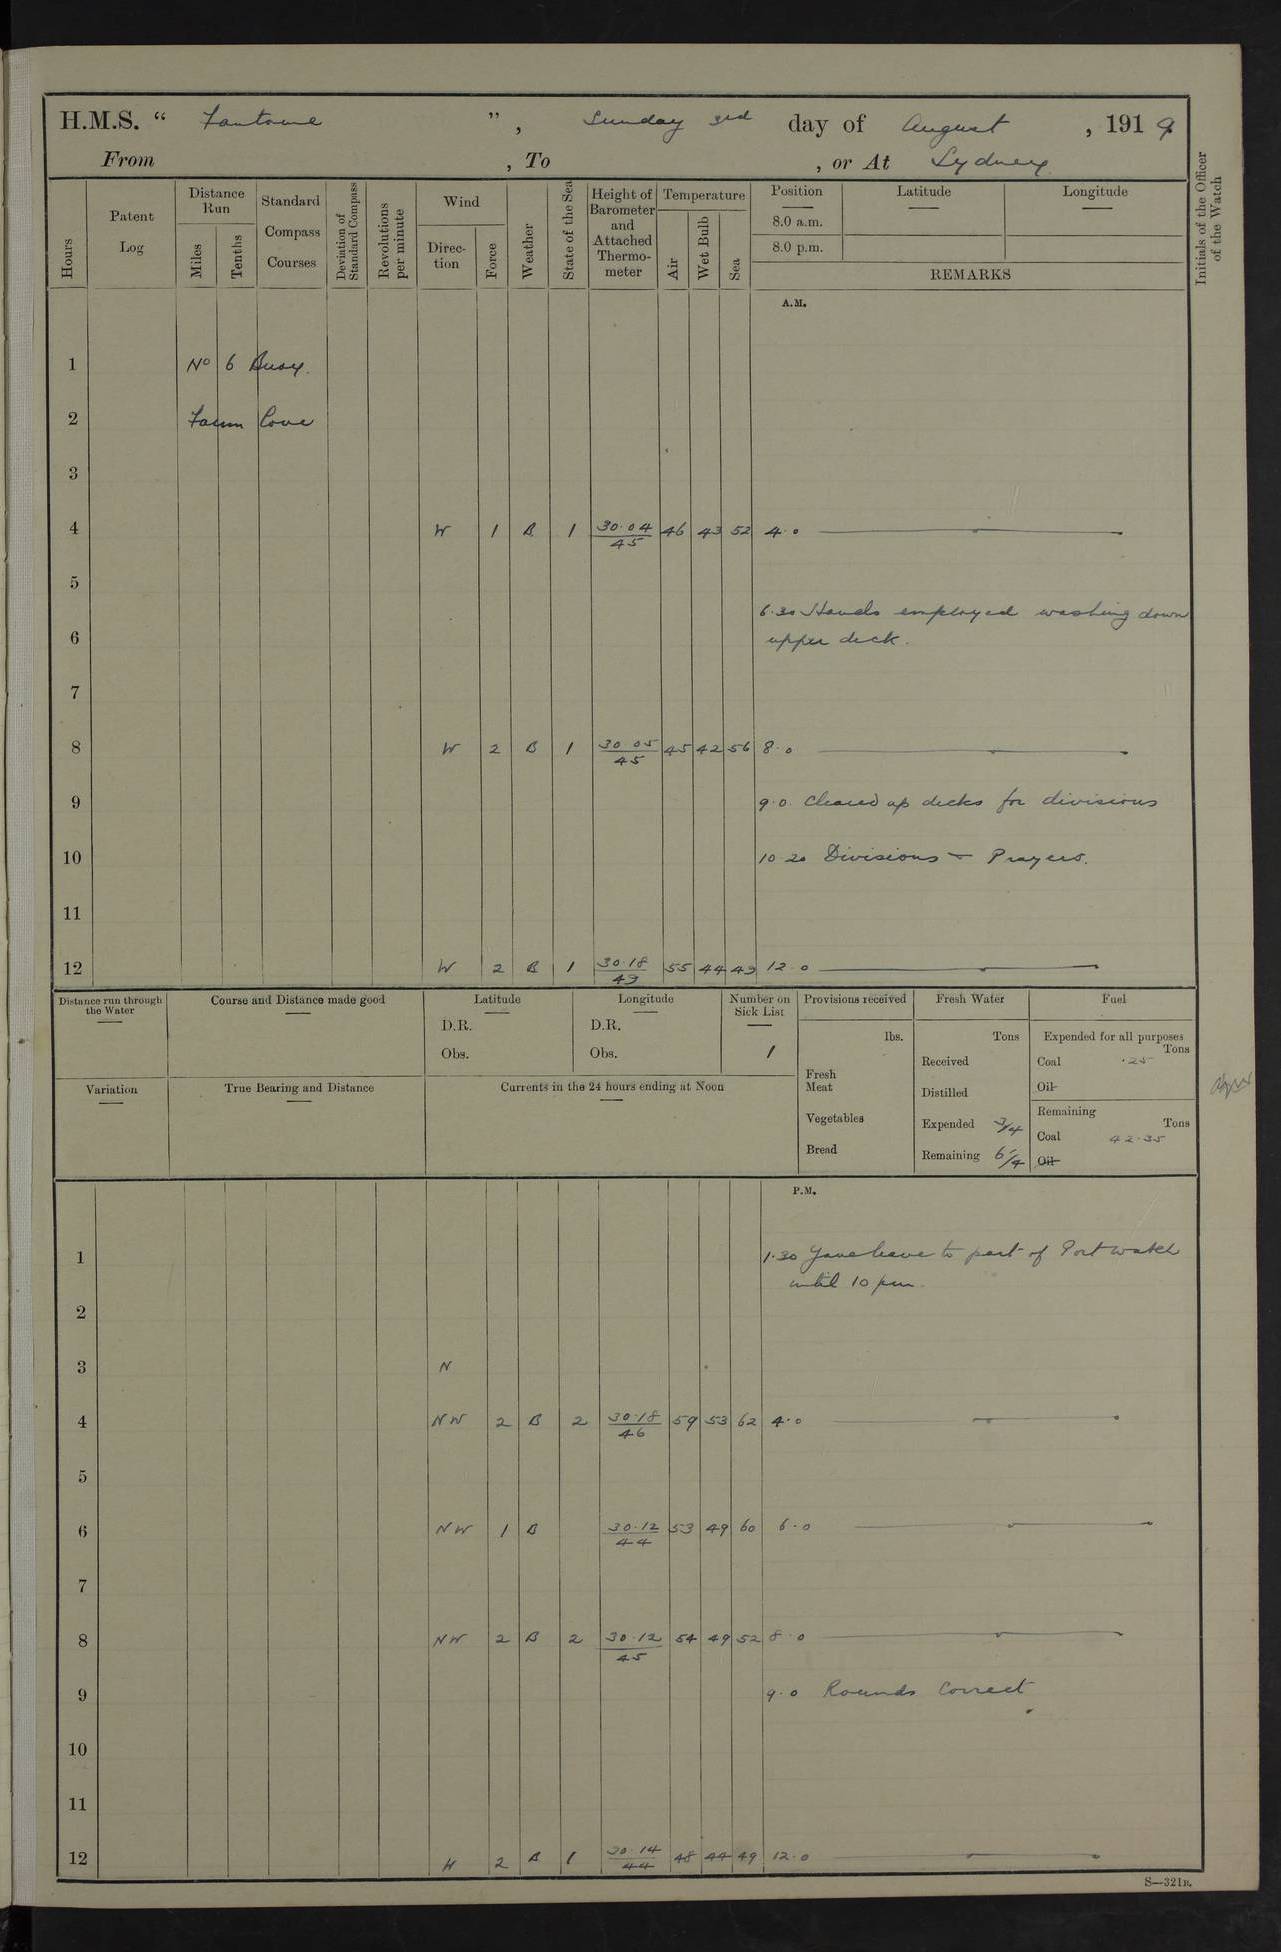 H.M.S. “ Fantome ” , Sunday 3rd day of August , 1919
From , To , or At Sydney
Hours
Patent Log
Distance Run
Miles
Tenths
Standard Compass Courses
Deviation of Standard Compass
Revolutions per minute
Wind
Direc-tion
Force
Weather
State of the Sea
Height of Barometer and Attached Thermo-meter
Temperature
Air
Wet Bulb
Sea
Position
8.0 a.m.
8.0 p.m.
Latitude
Longitude
REMARKS
Initials of the Officer of the Watch
A.M.
1 No 6 Buoy.
2 Farm Cove
3
4 W 1 B 1 30.04/45 46 43 52 4.0
5
6.30 Hands employed washing down
6 upper deck.
7
8 W 2 B 1 30.05/45 45 42 56 8.0
9 9.0. Cleared up decks for divisions
10 10.20 Divisions & Prayers.
11
12 W 2 B 1 30.18/49 55 44 49 12.0
Distance run through the Water
Course and Distance made good
Latitude
D.R.
Obs.
Longitude
D.R.
Obs.
Number on Sick List
1
Provisions received
lbs.
Fresh Meat
Vegetables
Bread
Fresh Water
Tons
Received
Distilled
Expended 3/4
Remaining 6 1/4
Fuel
Expended for all purposes
Tons
Coal .25
Oil
Remaining
Tons
Coal 42.35
Oil
Variation
True Bearing and Distance
Currents in the 24 hours ending at Noon
P.M.
1 1.30 Gave leave to part of Port watch
until 10 pm.
2
3 N
4 NW 2 B 2 30.18/46 59 53 62 4.0
5
6 NW 1 B 30.12/44 53 49 60 6.0
7
8 NW 2 B 2 30.12/45 54 49 52 8.0
9 9.0 Rounds Correct
10
11
12 W 2 B 1 30.14/44 48 44 49 12.0
S—321B.